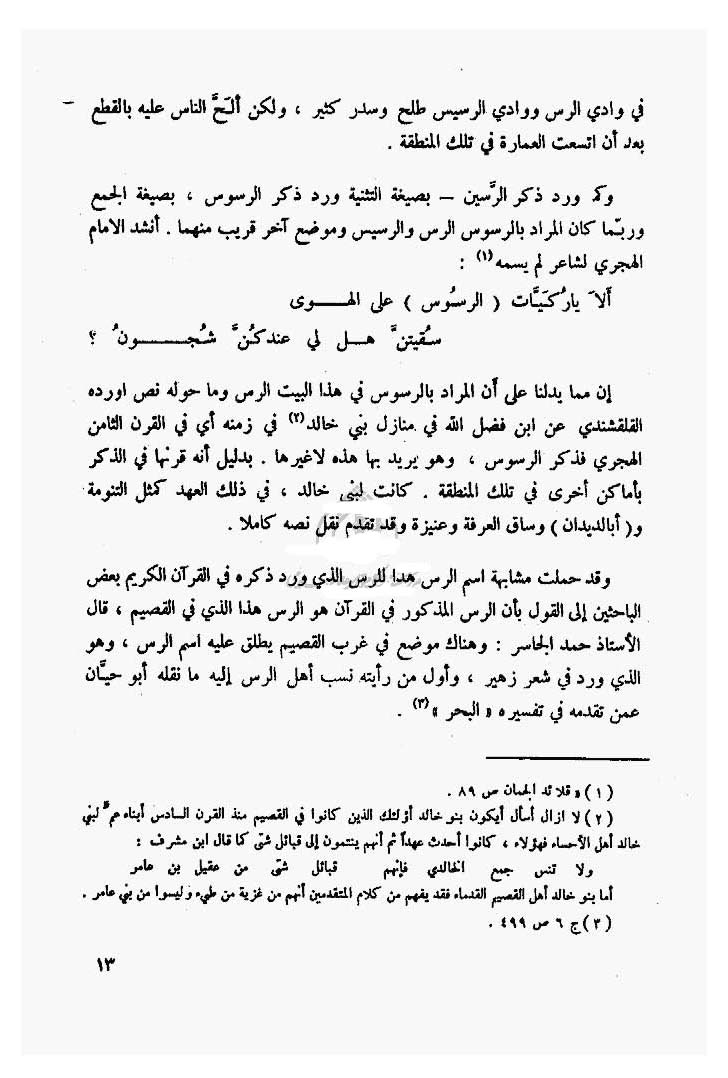 في وادي الرس ووادي الرسيس طلح وسدر كثير ، ولكن ألحَّ الناس عليه بالقطع –
بعد أن اتسعت العمارة في تلك المنطقة .
وكم ورد ذكر الرَّسين – بصيغة التثنية ورد ذكر الرسوس ، بصيغة الجمع
وربّما كان المراد بالرسوس الرس والرسيس وموضع آخر قريب منهما . أنشد الامام
الهجري لشاعر لم يسمه(١) :
أَلاَ يارُكَيَّات ( الرسُوس ) على الهـــوى
سُقيتنَّ هـــل لي عندكُنَّ شُجــــونُ ؟
إن مما يدلنا على أن المراد بالرسوس في هذا البيت الرس وما حوله نص اورده
القلقشندي عن ابن فضل الله في منازل بني خالد(٢) في زمنه أي في القرن الثامن
الهجري فذكر الرسوس ، وهو يريد بها هذه لاغيرها . بدليل أنه قرنها في الذكر
بأماكن أخرى في تلك المنطقة . كانت لبنى خالد ، في ذلك العهد كمثل التنومة
و( أبالديدان ) وساق العرفة وعنيزة وقد تقدم نقل نصه كاملا .
وقد حملت مشابهة اسم الرس هذا للرس الذي ورد ذكره في القرآن الكريم بعض
الباحثين إلى القول بأن الرس المذكور في القرآن هو الرس هذا الذي في القصيم ، قال
الأستاذ حمد الجاسر : وهناك موضع في غرب القصيم يطلق عليه اسم الرس ، وهو
الذي ورد في شعر زهير ، وأول من رأيته نسب أهل الرس إليه ما نقله أبو حيَّان
عمن تقدمه في تفسيره « البحر »(٣) .
( ١ ) « قلائد الجمان ص ٨٩ .
( ٢ ) لا ازال أسأل أيكون بنو خالد أولئك الذين كانوا في القصيم منذ القرن السادس أبناء عم لبني
خالد أهل الأحساء فهؤلاء ، كانوا أحدث عهداً ثم أنهم ينتمون إلى قبائل شتى كما قال ابن مشرف :
ولا تنس جمع الخالدي فإنهم قبائل شتى من عقيل بن عامر
أما بنو خالد أهل القصيم القدماء فقد يفهم من كلام المتقدمين أنهم من غزية من طيء وليسوا من بني عامر .
( ٣ ) ج ٦ ص ٤٩٩ .
١٣